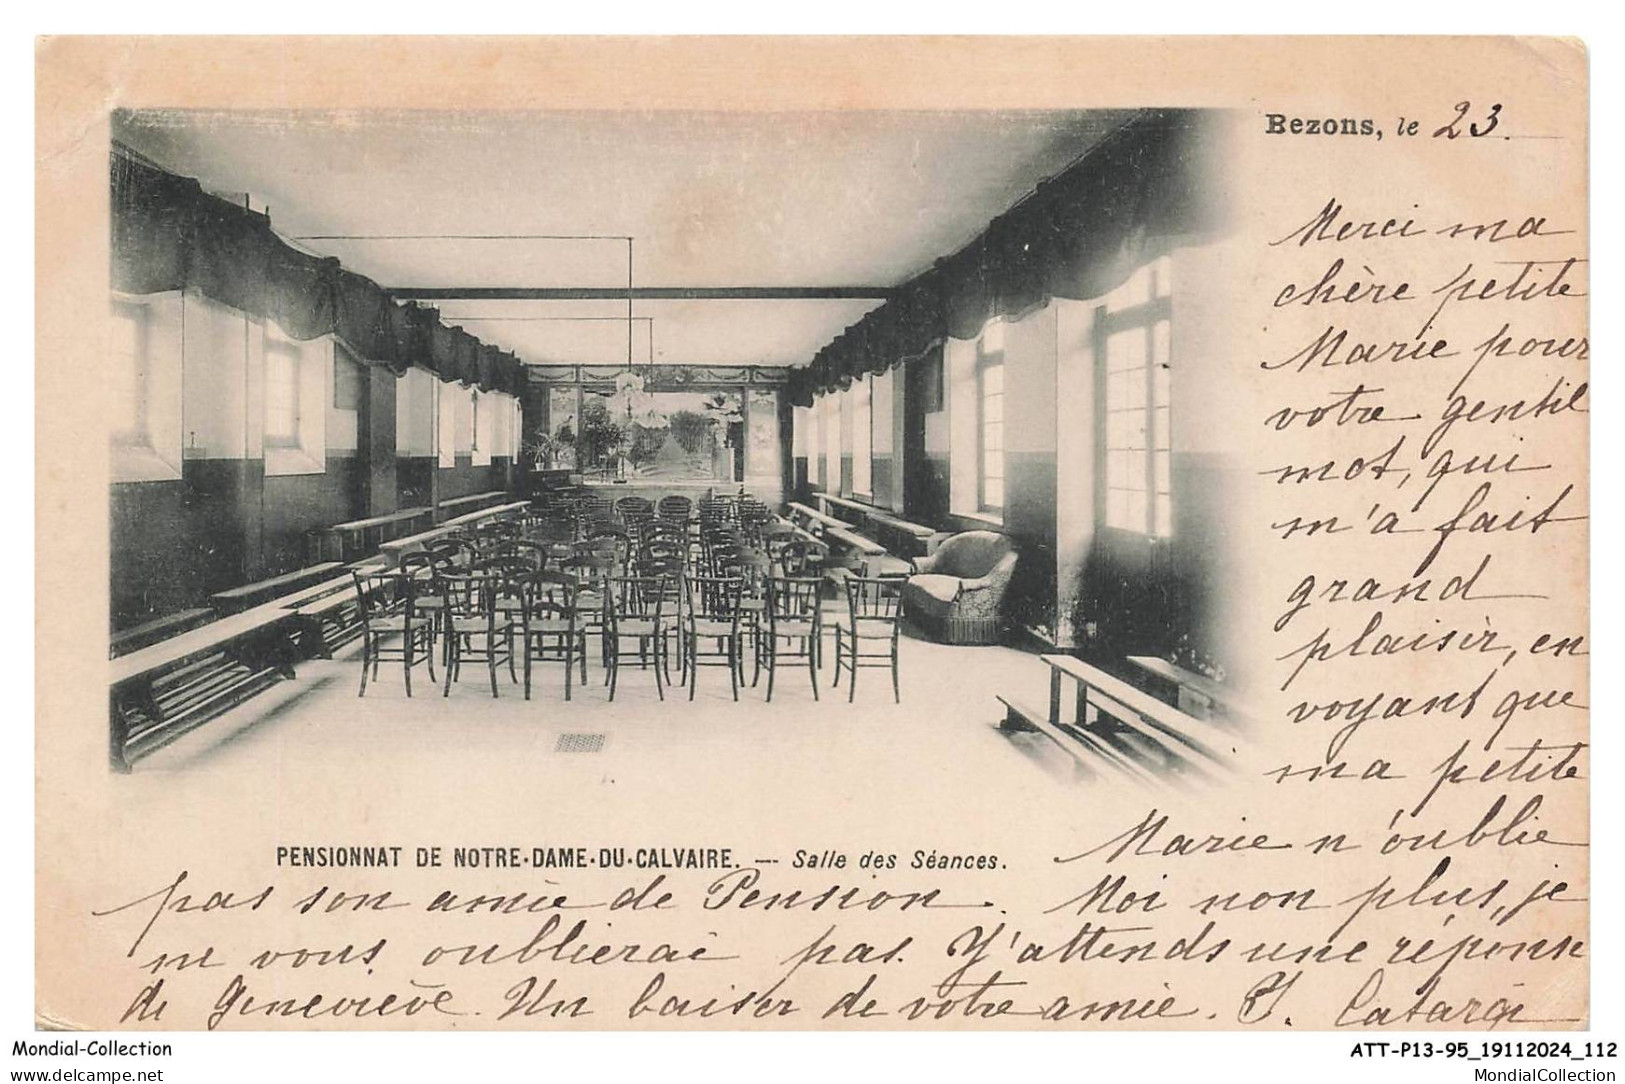 Bezons, le 23.
Merci ma
chère petite
Marie pour
votre gentil
mot, qui
m'a fait
grand
plaisir, en
voyant que
ma petite
Marie n'oublie
PENSIONNAT DE NOTRE-DAME-DU-CALVAIRE. — Salle des Séances.
pas son amie de Pension. Moi non plus, je
ne vous oublierai pas. J'attends une réponse
de Geneviève. Un baiser de votre amie.
Mondial-Collection
ATT-P13-95_19112024_112
delcampe.net
MondialCollection